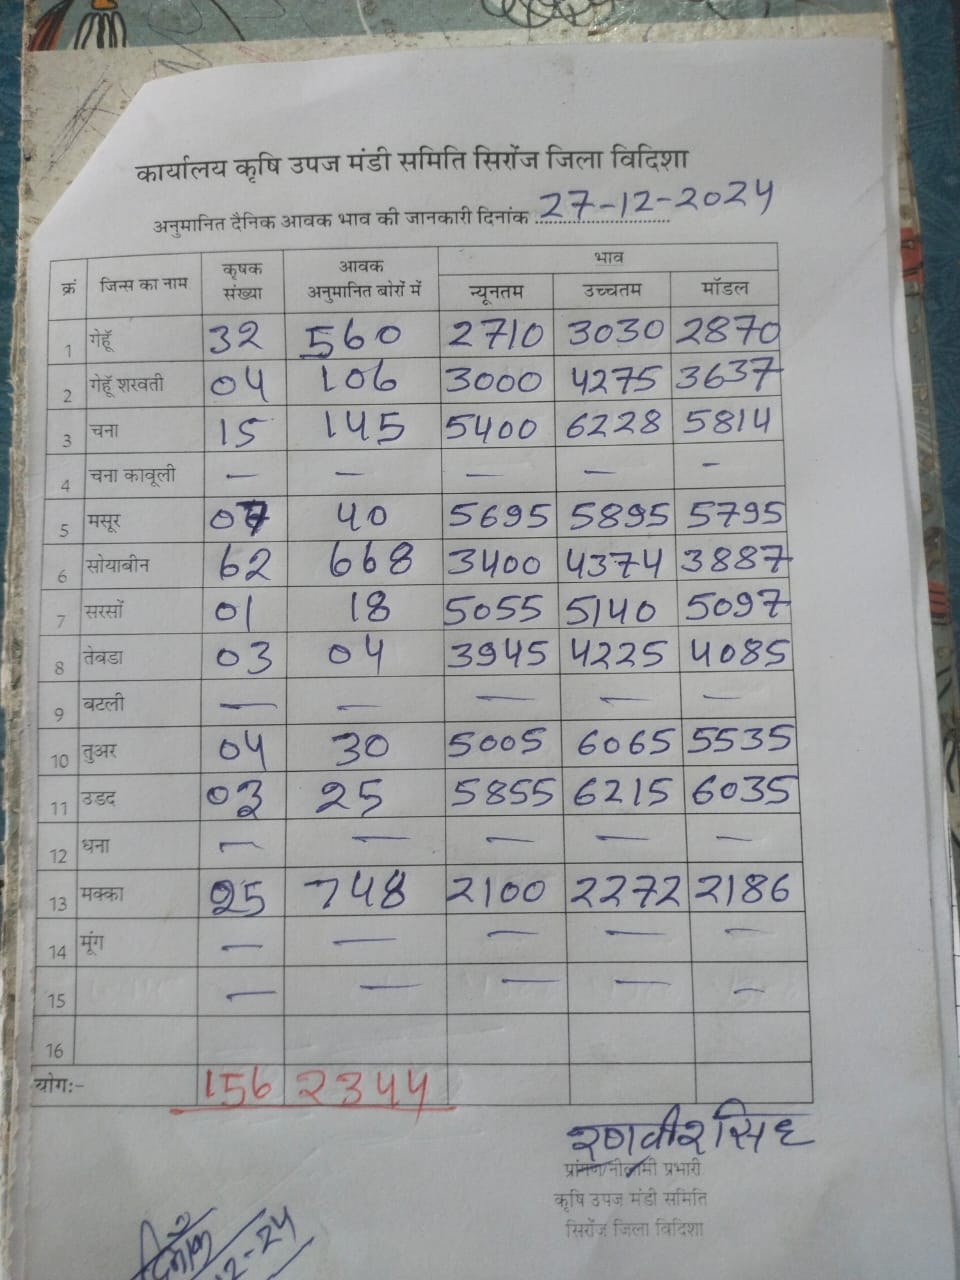 कार्यालय कृषि उपज मंडी समिति सिरोंज जिला विदिशा
अनुमानित दैनिक आवक भाव की जानकारी दिनांक 27-12-2024
क्रं जिन्स का नाम कृषक संख्या आवक अनुमानित बोरों में भाव
न्यूनतम उच्चतम मॉडल
1 गेहूँ 32 560 2710 3030 2870
2 गेहूँ शरवती 04 106 3000 4275 3637
3 चना 15 145 5400 6228 5814
4 चना कावूली — — — — —
5 मसूर 07 40 5695 5895 5795
6 सोयाबीन 62 668 3400 4374 3887
7 सरसों 01 18 5055 5140 5097
8 तेवडा 03 04 3945 4225 4085
9 बटली — — — — —
10 तुअर 04 30 5005 6065 5535
11 उडद 03 25 5855 6215 6035
12 धना — — — — —
13 मक्का 25 748 2100 2272 2186
14 मूंग — — — — —
15 — — — — —
16
योगः- 156 2344
रणवीरसिंह
प्रांगण/नीलामी प्रभारी
कृषि उपज मंडी समिति
सिरोंज जिला विदिशा
दिनाँक
12-24